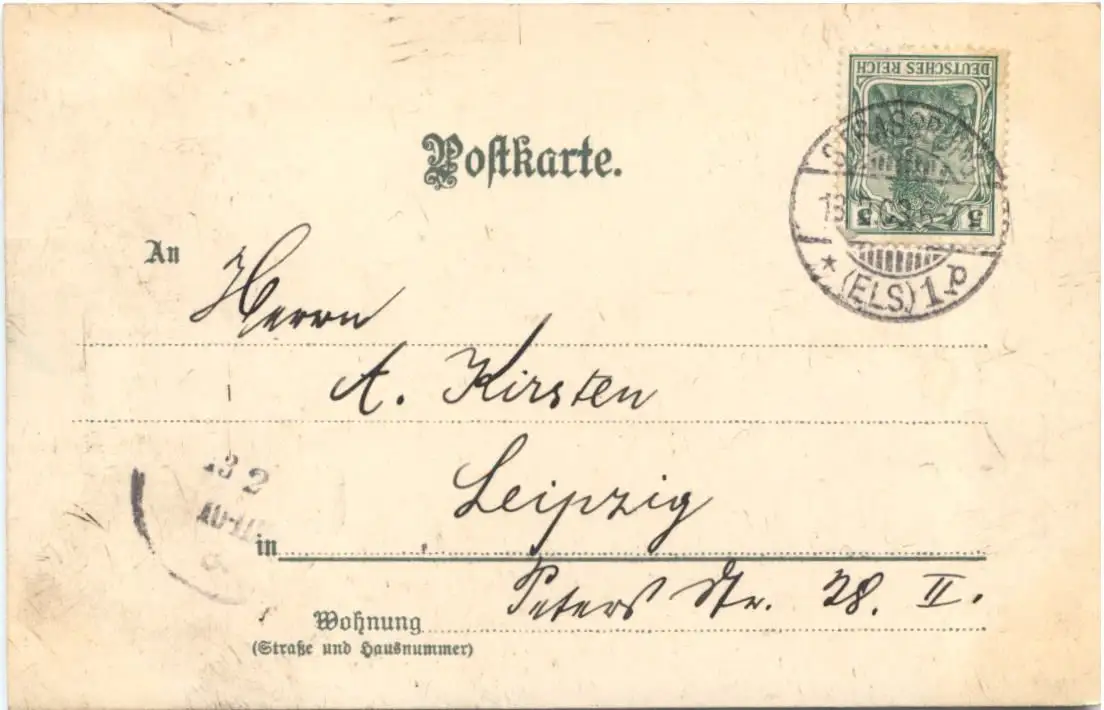 DEUTSCHES REICH
5 5
Postkarte.
(ELS) 1.p
An
Herrn
A. Kirsten
Leipzig
13 2
in
Peters Str. 28. II.
Wohnung
(Straße und Hausnummer)